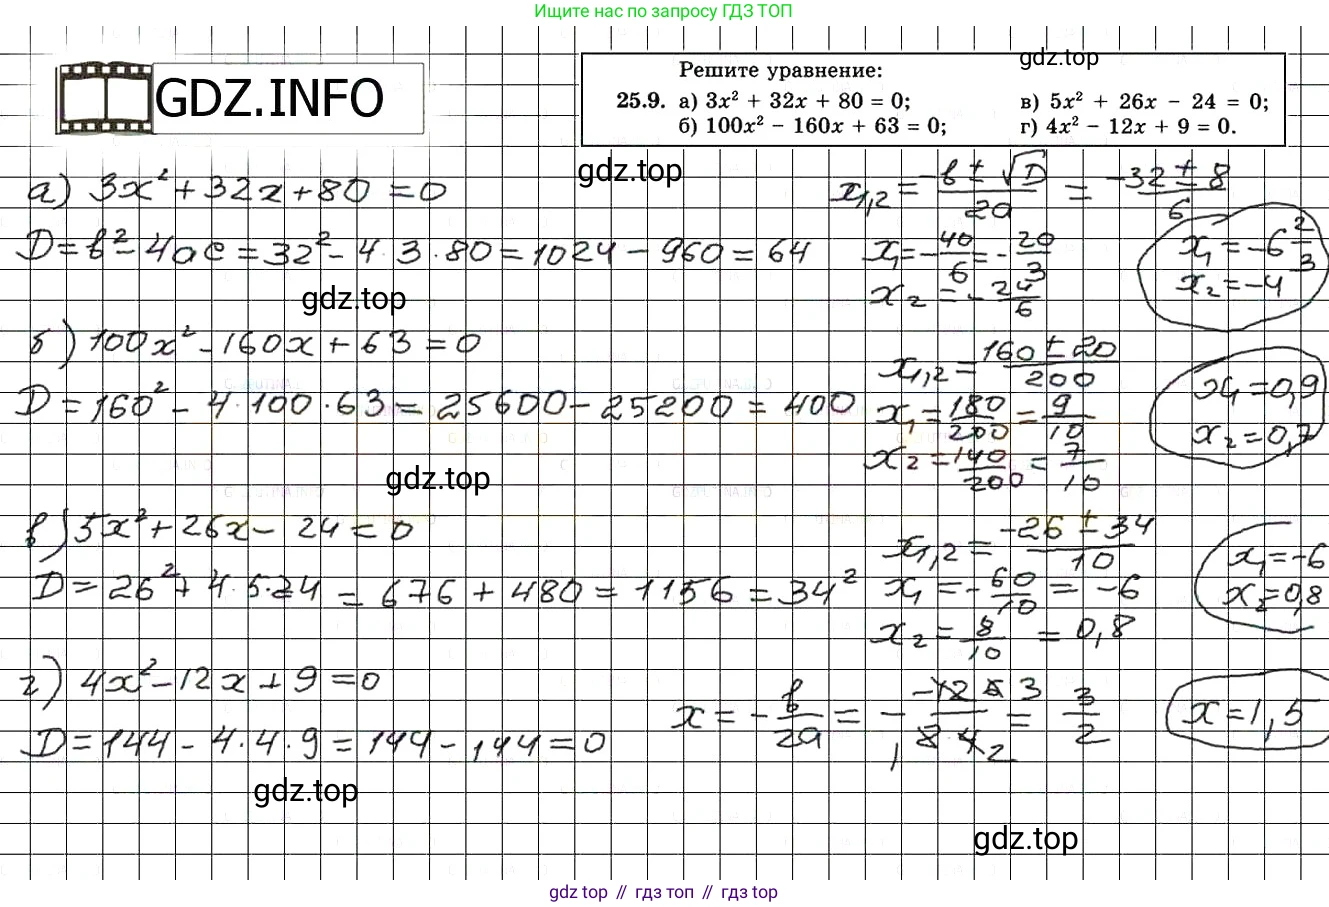 Ищите нас по запросу ГДЗ ТОП
GDZ.INFO
gdz.top
Решите уравнение:
25.9. а) 3x² + 32x + 80 = 0; в) 5x² + 26x − 24 = 0;
б) 100x² − 160x + 63 = 0; г) 4x² − 12x + 9 = 0.
gdz.top
а) 3x² + 32x + 80 = 0
D = b² − 4ac = 32² − 4·3·80 = 1024 − 960 = 64
x₁,₂ = (−b ± √D)/2a = (−32 ± 8)/6
x₁ = −40/6 = −20/3
x₂ = −24/6
x₁ = −6 2/3
x₂ = −4
gdz.top
б) 100x² − 160x + 63 = 0
D = 160² − 4·100·63 = 25600 − 25200 = 400
x₁,₂ = (160 ± 20)/200
x₁ = 180/200 = 9/10
x₂ = 140/200 = 7/10
x₁ = 0,9
x₂ = 0,7
gdz.top
в) 5x² + 26x − 24 = 0
D = 26² + 4·5·24 = 676 + 480 = 1156 = 34²
x₁,₂ = (−26 ± 34)/10
x₁ = −60/10 = −6
x₂ = 8/10 = 0,8
x₁ = −6
x₂ = 0,8
г) 4x² − 12x + 9 = 0
D = 144 − 4·4·9 = 144 − 144 = 0
x = −b/2a = − = 3/2
x = 1,5
gdz.top
gdz.top
gdz top // гдз топ // gdz top